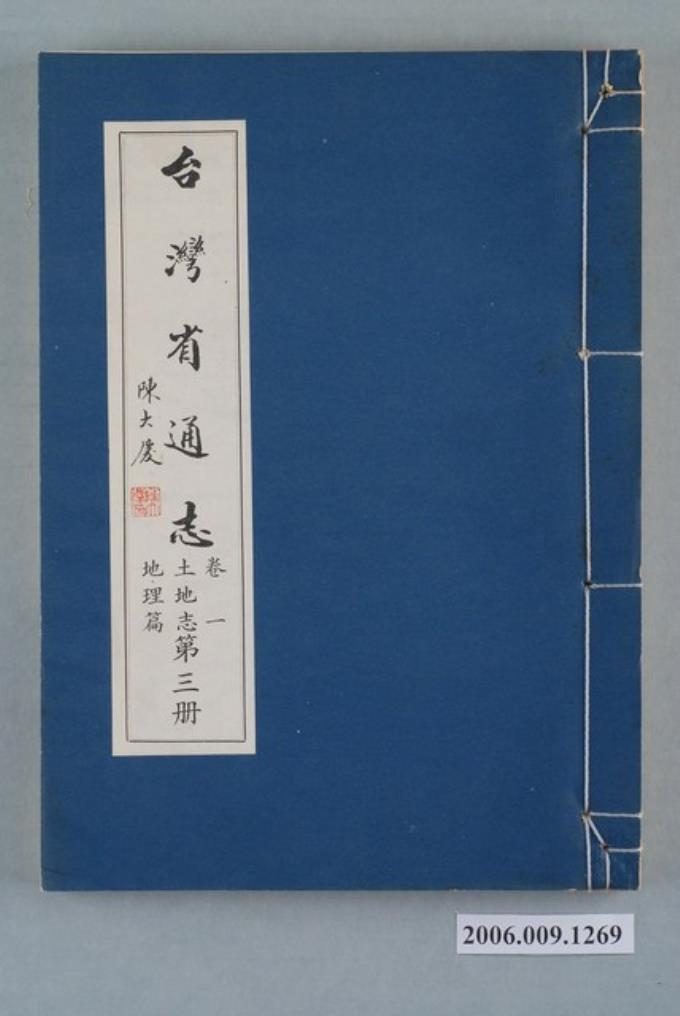 台灣省通志
卷一
土地志第三册
地理篇
陳大慶
2006.009.1269